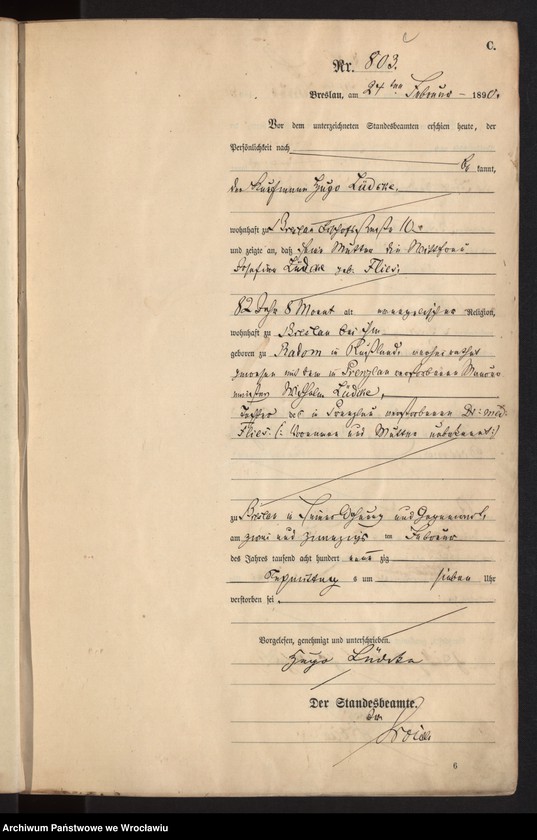 C.
Nr. 803.
Breslau, am 24ten Februar 1890.
Vor dem unterzeichneten Standesbeamten erschien heute, der
Persönlichkeit nach
kannt,
der Kaufmann Hugo Lüdcke,
wohnhaft zu Breslau Bischofstraße 10
und zeigte an, daß seine Mutter die Wittfrau
Josefine Lüdcke geb. Flies,
82 Jahr 8 Monat alt evangelischer Religion,
wohnhaft zu Breslau bei ihm
geboren zu Radom in Rußland, verheirathet
gewesen mit dem in Prenzlau verstorbenen Maurer
meister Wilhelm Lüdcke,
Tochter des in Prenzlau verstorbenen Dr: med:
Flies (: Vorname und Mutter unbekannt :)
zu Breslau in seiner Wohnung und Gegenwart,
am zwei und zwanzigs ten Februar
des Jahres tausend acht hundert neun zig
Nachmittag s um sieben Uhr
verstorben sei.
Vorgelesen, genehmigt und unterschrieben.
Hugo Lüdcke
Der Standesbeamte.
6
Archiwum Państwowe we Wrocławiu